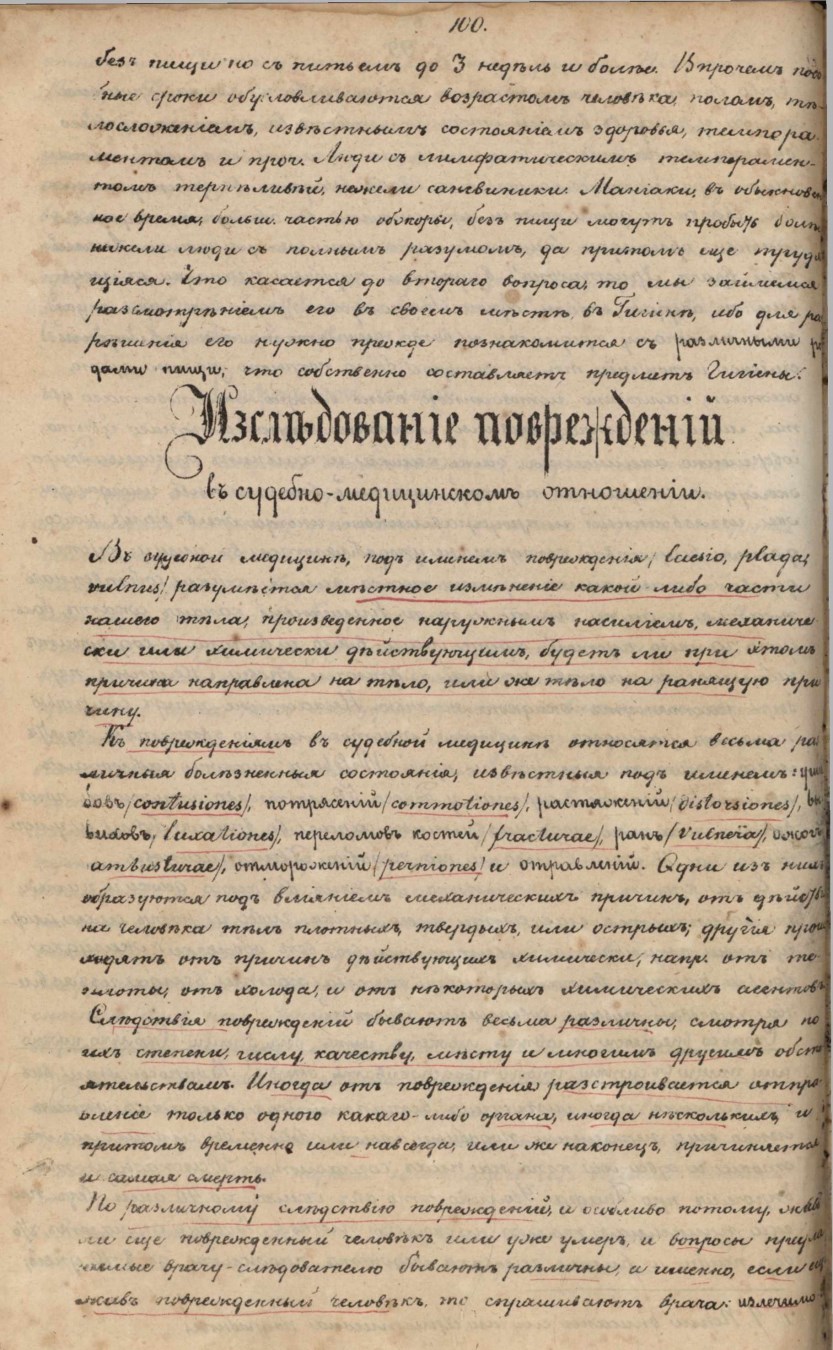 100.
безъ пищи но съ питьемъ до 3 недѣль и болѣе. Впрочемъ подо
бные сроки обусловливаются возрастомъ человѣка, поломъ, тѣ
лосложеніемъ, извѣстнымъ состояніемъ здоровья, темпера
ментомъ и проч. Люди съ лимфатическимъ темперамен-
томъ терпѣливѣй, нежели сангвиники. Маніаки, въ обыкновен
ное время, больш. частью обжоры, безъ пищи могутъ пробыть болѣ
нежели люди съ полнымъ разумомъ, да притомъ еще трудя
щіяся. Что касается до втораго вопроса, то мы займемся
разсмотрѣніемъ его въ своемъ мѣстѣ, въ Гигіенѣ, ибо для ра
рѣшенія его нужно прежде познакомится съ различными ро
дами пищи, что собственно составляетъ предметъ Гигіены.
Изслѣдованіе поврежденій
въ судебно-медицинскомъ отношеніи.
Въ судебной медицинѣ, подъ именемъ поврежденія, /laesio, plaga,
vulnus/ разумѣется мѣстное измѣненіе какой либо части
нашего тѣла, произведенное наружнымъ насиліемъ, механиче
ски или химически дѣйствующимъ, будетъ ли при этомъ
причина направлена на тѣло, или же тѣло на ранящую при
чину.
Къ поврежденіямъ въ судебной медицинѣ относятся весьма ра
личныя болѣзненныя состоянія, извѣстныя подъ именемъ: уши
бовъ /contusiones/, потрясеній /commotiones/, растяженій /distorsiones/, вы
виховъ /luxationes/, переломовъ костей /fracturae/, ранъ /vulnera/, ожог
ambusturae/, отмороженій /perniones/ и отравленій. Одни изъ нихъ
образуются подъ вліяніемъ механическихъ причинъ, отъ дѣйств
на человѣка тѣлъ плотныхъ, твердыхъ, или острыхъ; другія прои
ходятъ отъ причинъ дѣйствующихъ химически, напр. отъ те
плоты, отъ холода, и отъ нѣкоторыхъ химическихъ агентовъ
Слѣдствія поврежденій бываютъ весьма различны, смотря по
ихъ степени, числу, качеству, мѣсту и многимъ другимъ обст
ятельствамъ. Иногда отъ поврежденія разстроивается отпра
вленіе только одного какаго-либо органа, иногда нѣсколькихъ, и
притомъ временно или навсегда, или же наконецъ, причиняется
и самая смерть.
По различному слѣдствію поврежденій, и особливо потому, живъ
ли еще поврежденный человѣкъ или уже умеръ, и вопросы предла
гаемые врачу-слѣдователю бываютъ различны, а именно, если
живъ поврежденный человѣкъ, то спрашиваютъ врача: излечимо